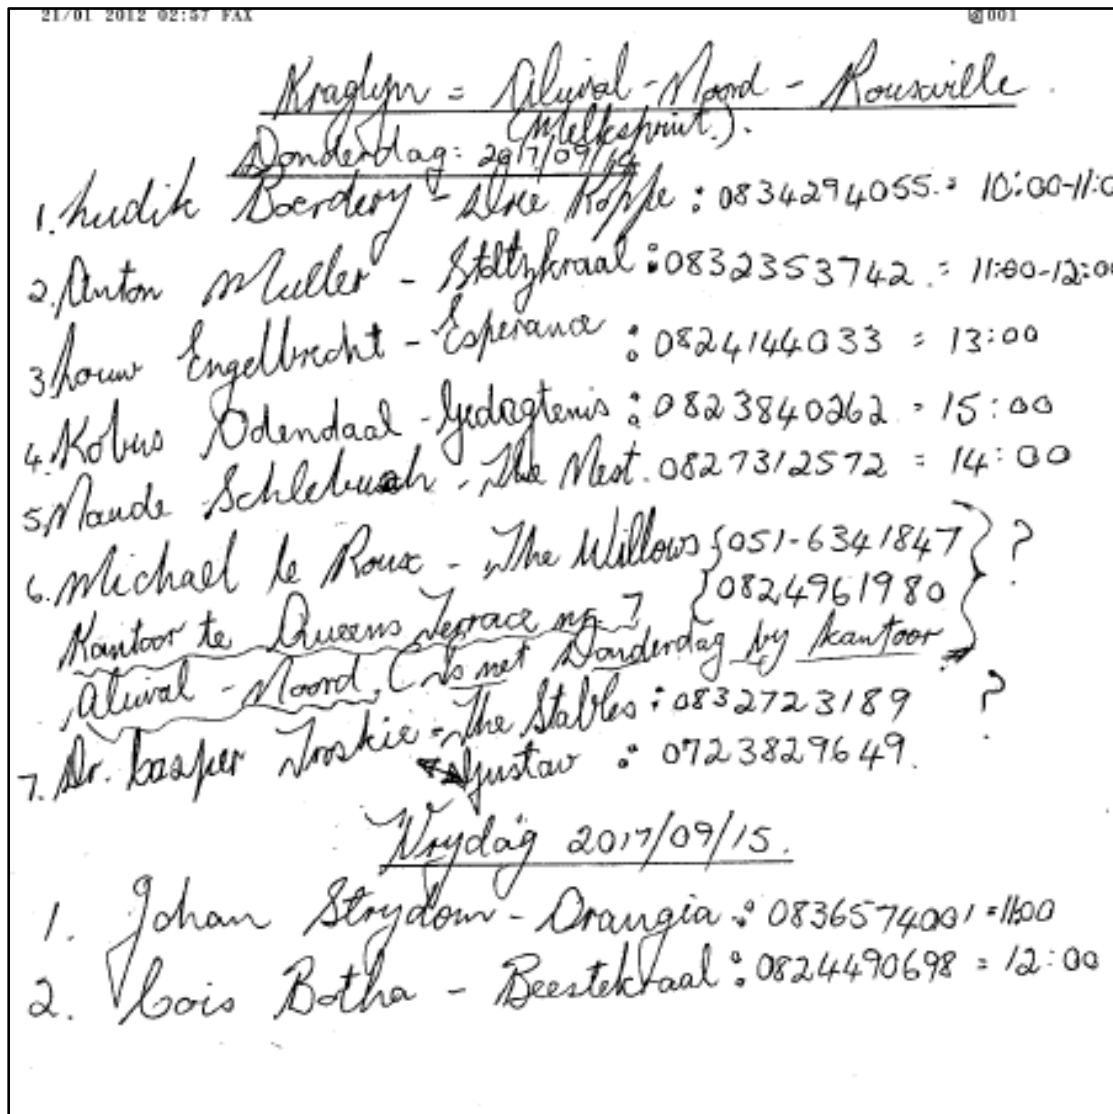 21/01 2012 02:57 FAX @001
Kraglyn = Aliwal-Noord - Rouxville.
(Melksprint.).
Donderdag: 2017/09/14
1. Ludik Boerdery - Drie Koppe : 0834294055 = 10:00-11:0
2. Anton Muller - Stoltzkraal : 0832353742 = 11:00-12:00
3. Louw Engelbrecht - Esperance : 0824144033 = 13:00
4. Kobus Odendaal - Gedagtenis : 0823840262 = 15:00
5. Maude Schlebusch - The Nest. 0827312572 = 14:00
6. Michael le Roux - The Willows {051-6341847} ?
{0824961980
Kantoor te Queens Terrace nr. 7
Aliwal-Noord, (Is net Donderdag by kantoor
7. Dr. Casper Troskie - The Stables : 0832723189 ?
Gustav : 0723829649.
Vrydag 2017/09/15.
1. Johan Strydom - Orangia : 0836574001 = 11:00
2. Cois Botha - Beestekraal : 0824490698 = 12:00